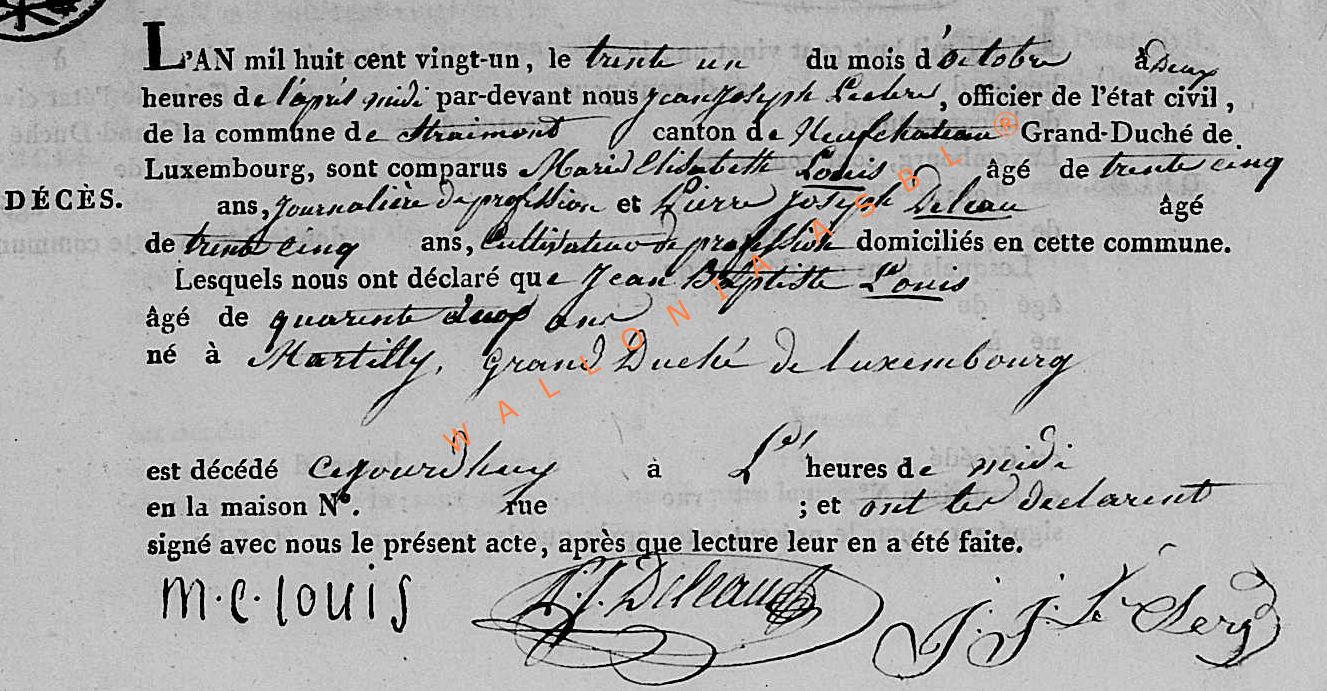 L'AN mil huit cent vingt-un, le trente un du mois d'octobre à deux
heures de l'après midi par-devant nous jean joseph Leclere, officier de l'état civil,
de la commune de Straimont canton de Neufchateau Grand-Duché de
Luxembourg, sont comparus Marie Elisabeth Louis âgé de trente cinq
DÉCÈS.
ans, journalière de profession et Pierre Joseph Deleau âgé
de trente cinq ans, Cultivateur de profession domiciliés en cette commune.
Lesquels nous ont déclaré que Jean Baptiste Louis
âgé de quarente deux ans
né à Martilly, Grand Duché de Luxembourg
est décédé cejourdhuy à L'es heures de midi
en la maison N°. rue ; et ont les declarent
signé avec nous le présent acte, après que lecture leur en a été faite.
m.e.louis P.J. Deleau J.J. Le Clerq
WALLONIA ASBL®